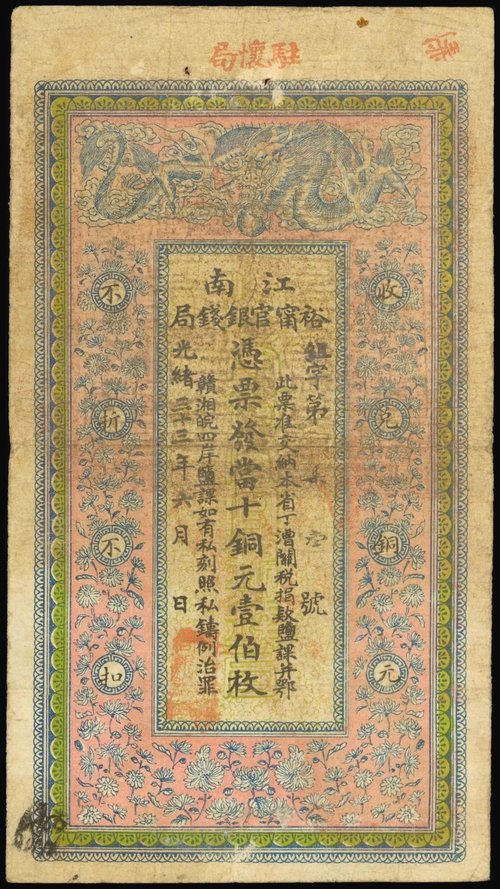 駐懷局
江南
裕甯官銀錢局
收兌銅元
字第 號
此票准交納本省丁漕關稅捐款鹽課并鄂
憑票發當十銅元壹伯枚
贛湘皖四岸鹽課如有私刻照私鑄例治罪
光緒三十三年六月 日
不折不扣